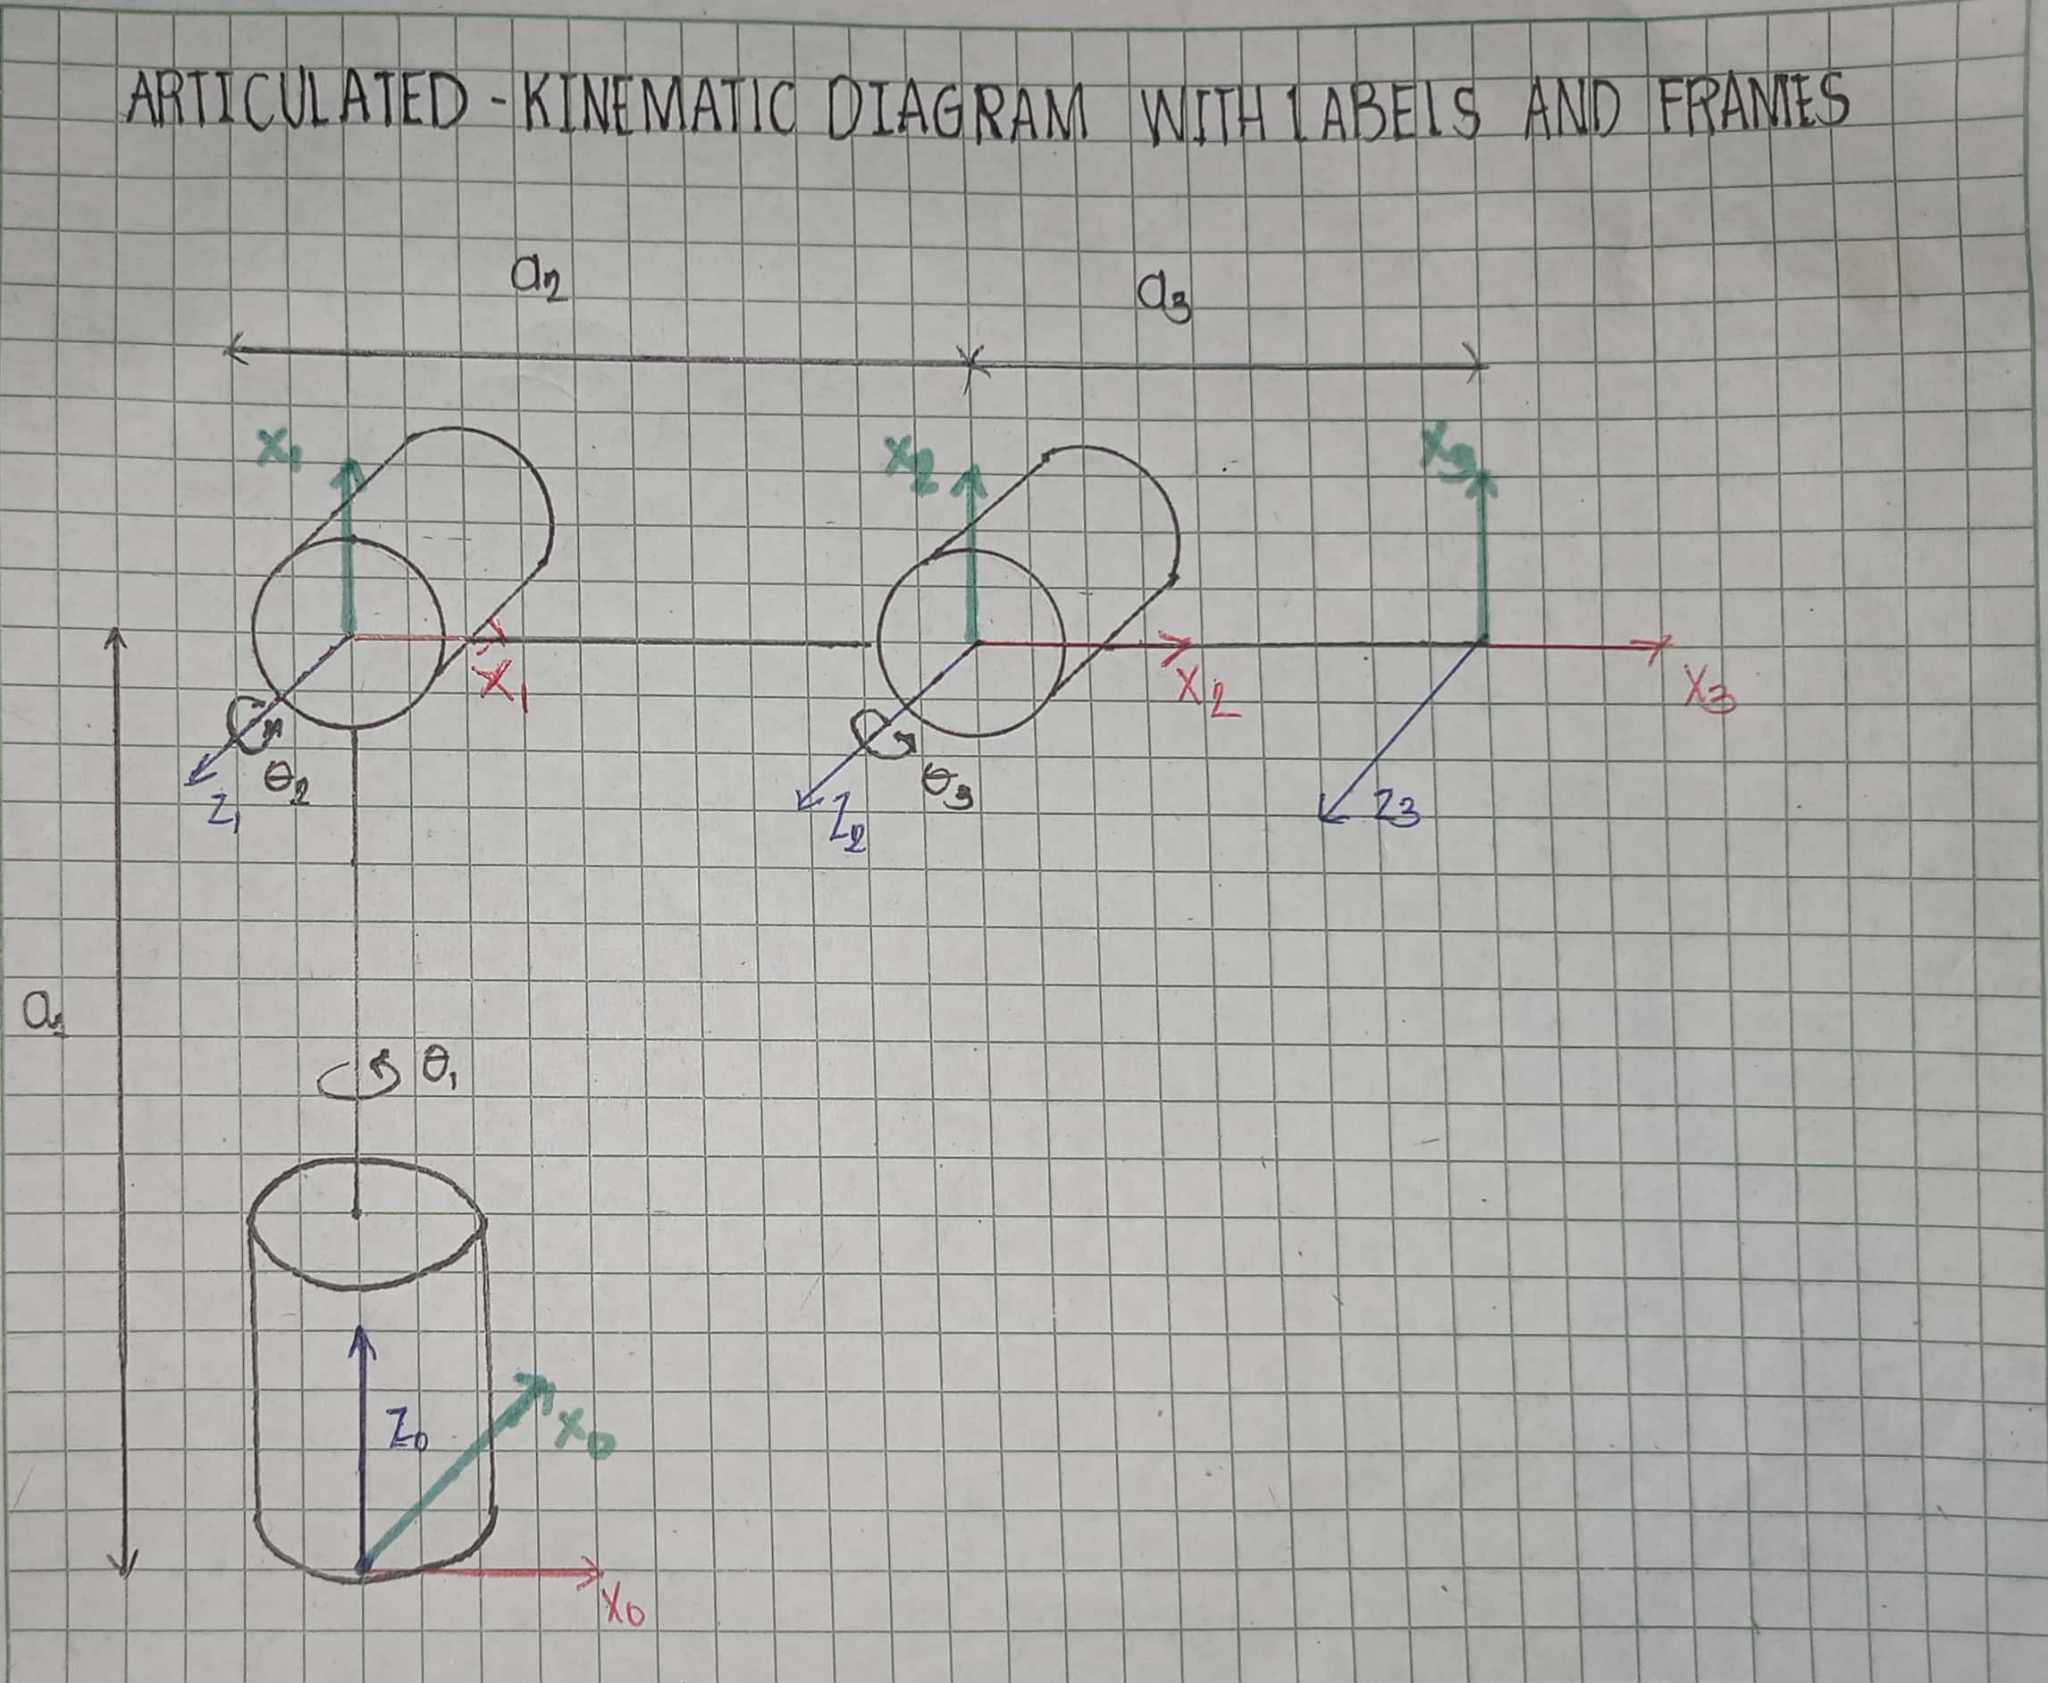 ARTICULATED - KINEMATIC DIAGRAM WITH LABELS AND FRAMES
a2
a3
X1
X2
X3
X1
X2
X3
θ2
Z1
θ3
Z2
Z3
a1
θ1
Z0
X0
X0